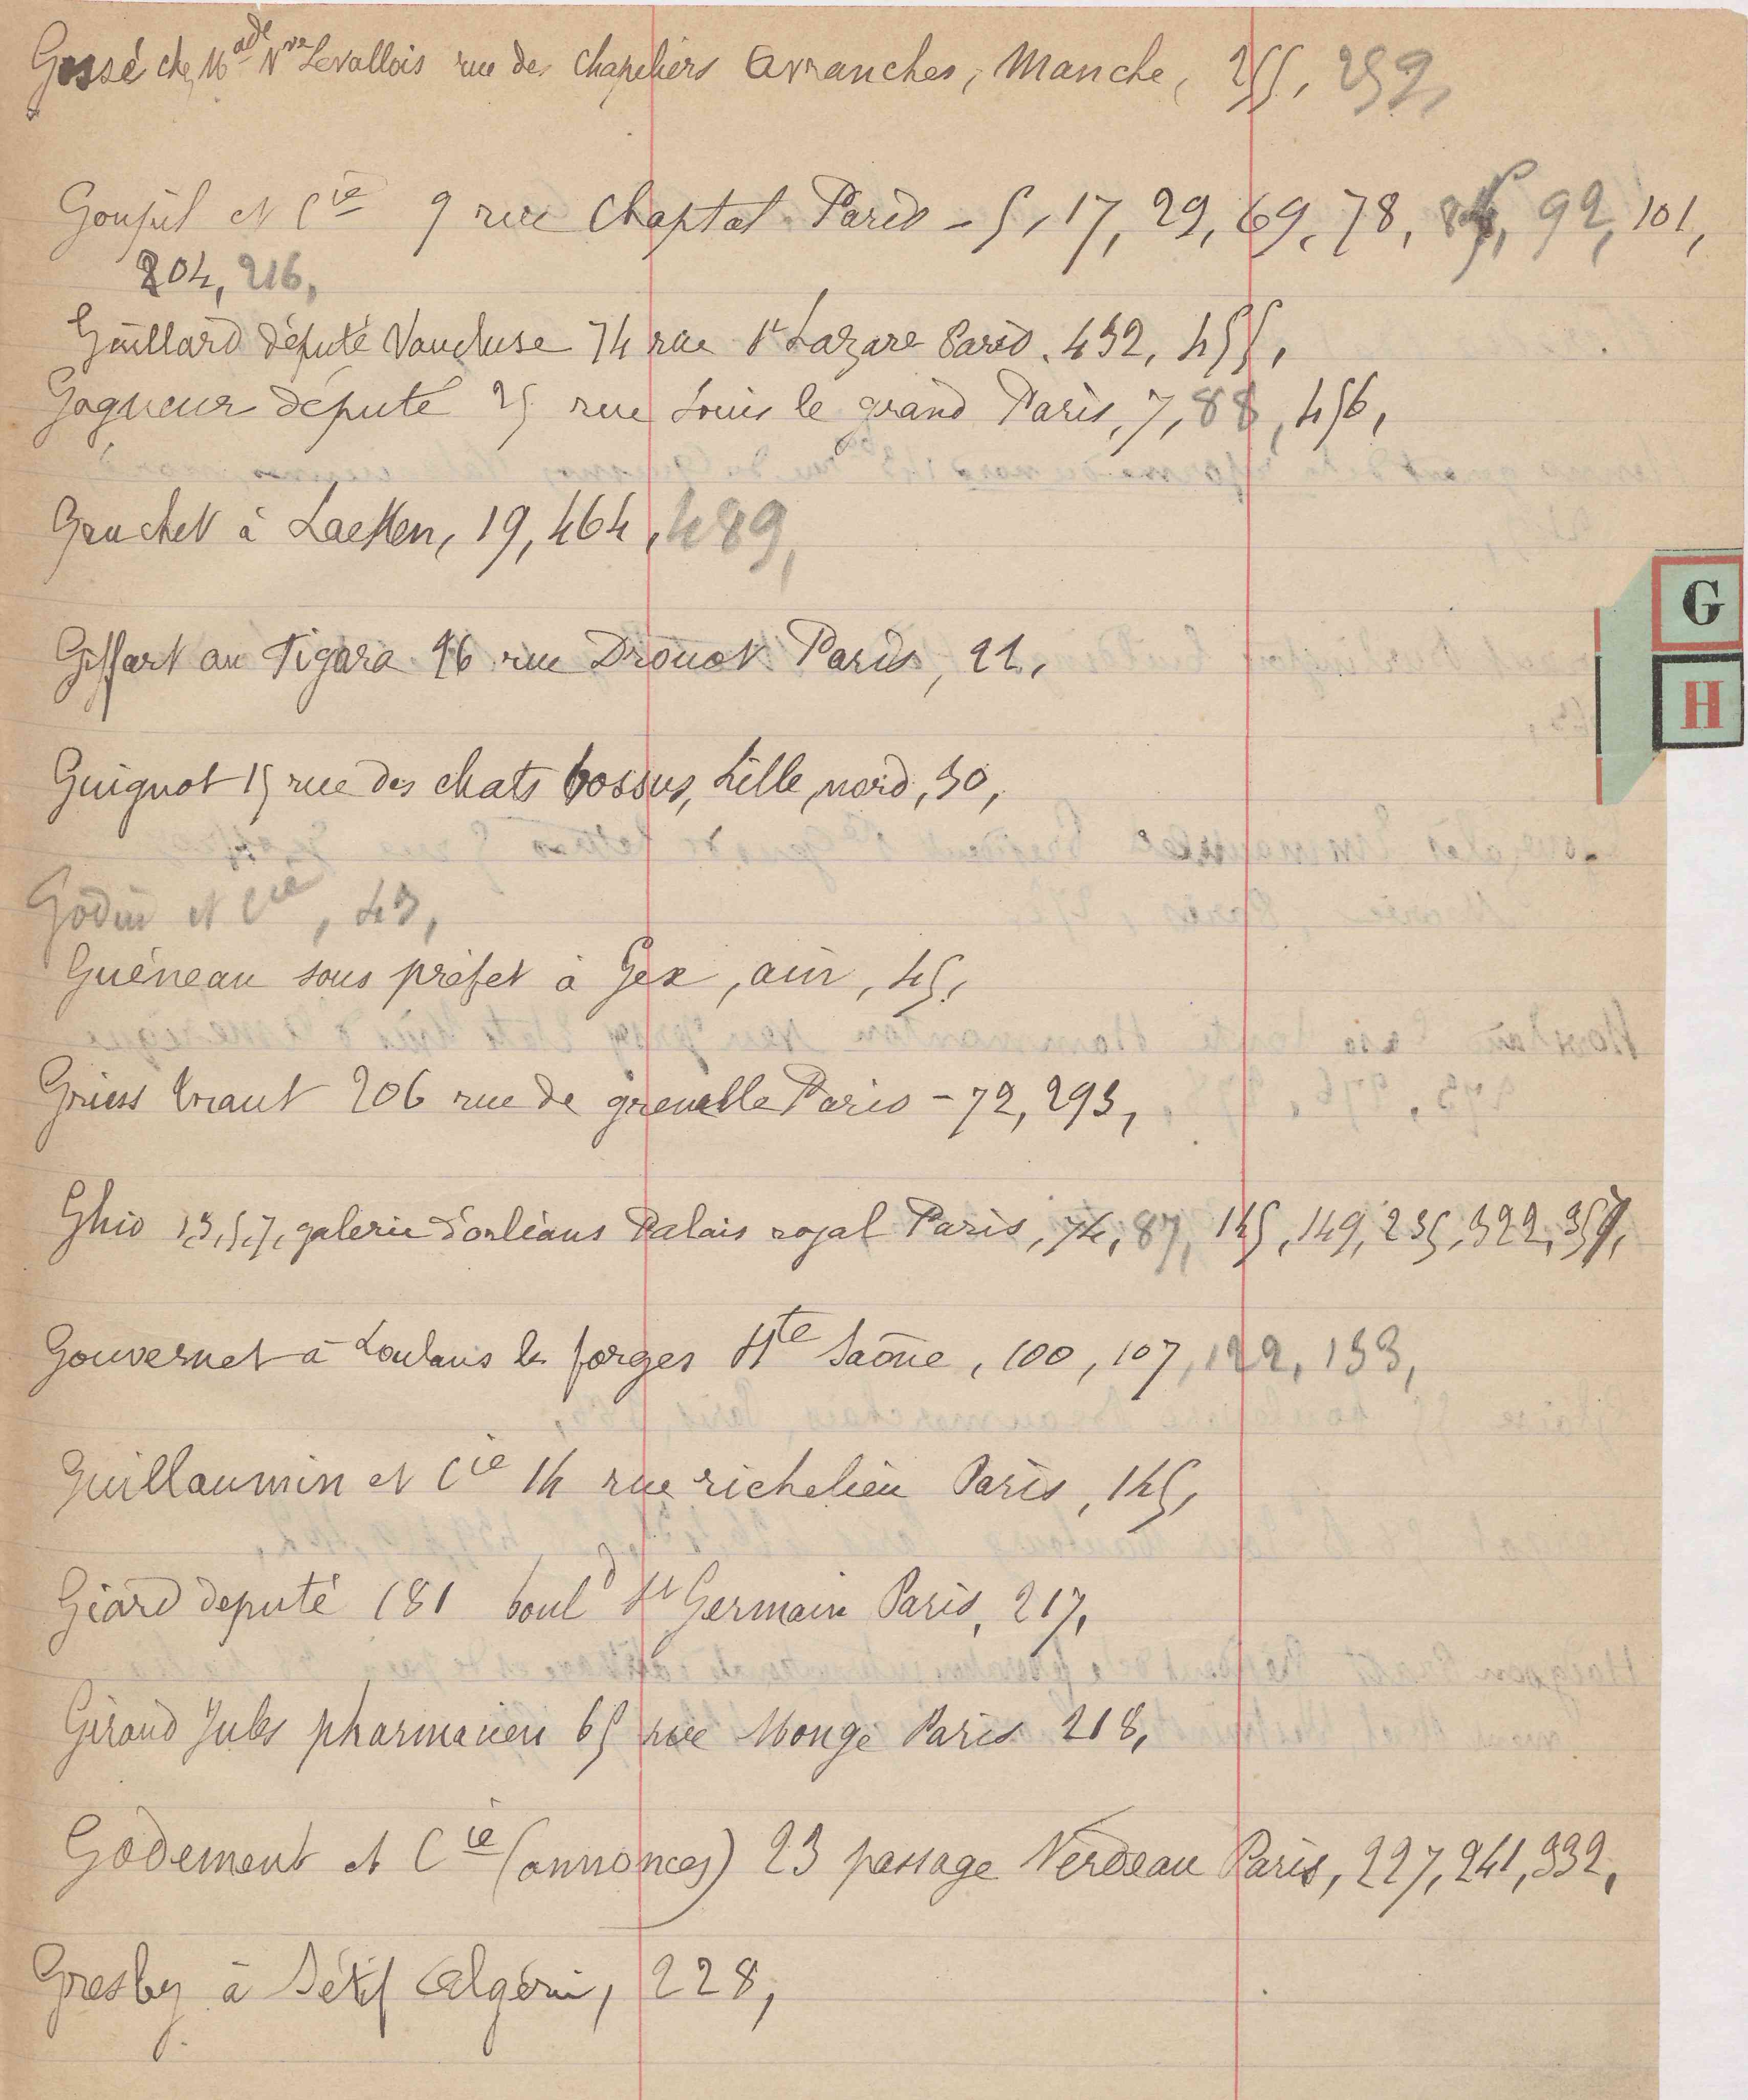 Gossé chez Made Vve Levallois rue des chapeliers Avranches, Manche, 255, 259,
Goupil et Cie 9 rue Chaptal Paris - 5, 17, 29, 69, 78, 92, 101,
204, 216,
Gaillard député Vaucluse 74 rue St Lazare Paris. 452, 455,
Gagneur député 25 rue Louis le grand Paris, 7, 88, 456,
Gruchet à Laeken, 19, 464, 489,
Giffart au Figaro 26 rue Drouot Paris, 21,
Guignot 15 rue des chats bossus, Lille, nord, 30,
Godin et Cie, 43,
Guéneau sous préfet à Gex, ain, 45,
Griess Traut 206 rue de grenelle Paris - 72, 293,
Ghio 1, 3, 5, 7, galerie d'orléans Palais royal Paris, 74, 87, 145, 149, 235, 322, 357,
Gouvernet à Loulans les forges Hte Saône, 100, 107, 122, 153,
Guillaumin et Cie 14 rue richelieu Paris, 145,
Giard deputé 181 bould St Germain Paris, 217,
Giraud Jules pharmacien 65 rue Monge Paris 218,
Godement et Cie (annonces) 23 passage Verdeau Paris, 227, 241, 332,
Gresley à Sétif Algérie, 228,
G
H